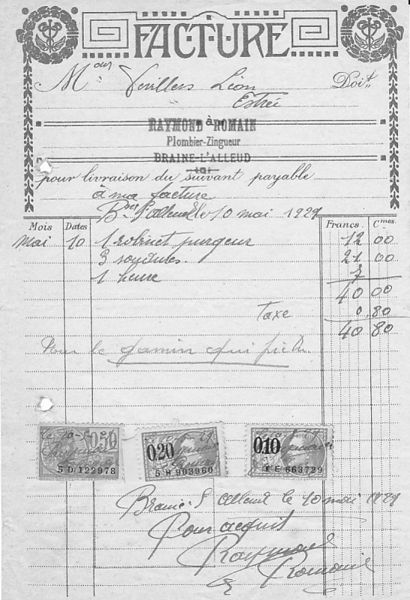 FACTURE
Mr Veuillers Léon Doit
Estrée
à
RAYMOND ROMAIN
Plombier-Zingueur
BRAINE-L'ALLEUD
pour livraison du suivant payable
à ma facture
Bne l'Alleud le 10 mai 1929
Mois Dates Francs. Cmes.
mai 10 1 robinet purgeur 12 00
3 soudures. 21 00
1 heure 7
40 00
Taxe 0.80
40 80
Pour le gamin qui
0,50 5 D 122978
0,20 5 H 903960
0,10 663729
Braine-l'Alleud le 10 mai 1929
Pour acquit
Raymond
Romain